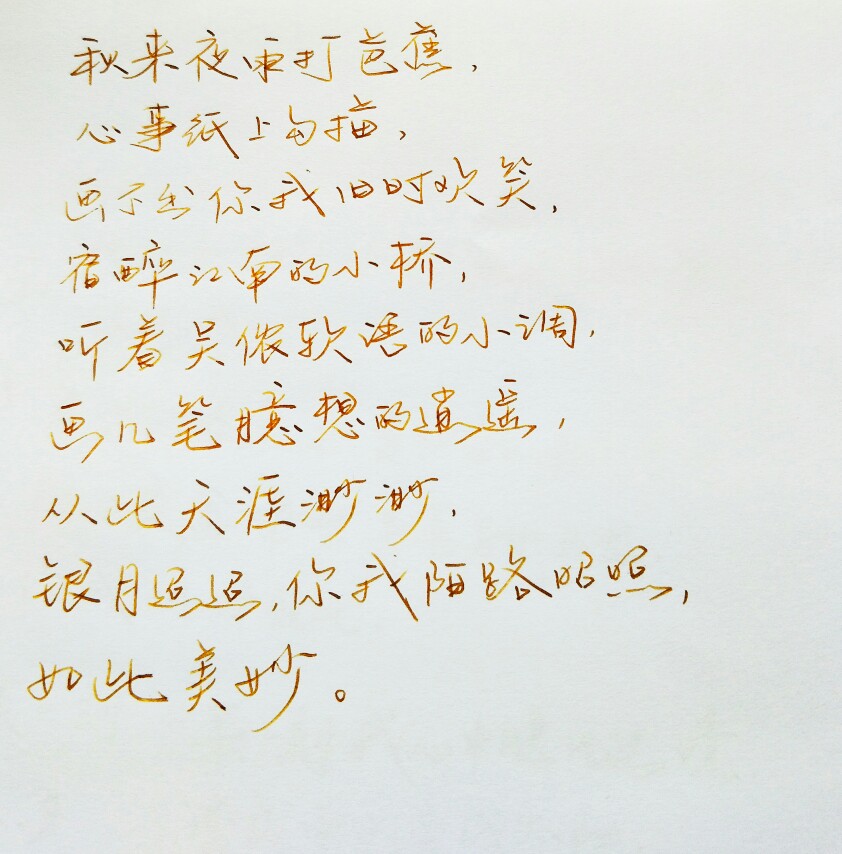 秋来夜雨打芭蕉,
心事纸上勾描,
画不出你我旧时欢笑,
宿醉江南的小桥,
听着吴侬软语的小调,
画几笔臆想的逍遥,
从此天涯渺渺,
银月迢迢,你我陌路昭照,
如此美妙。